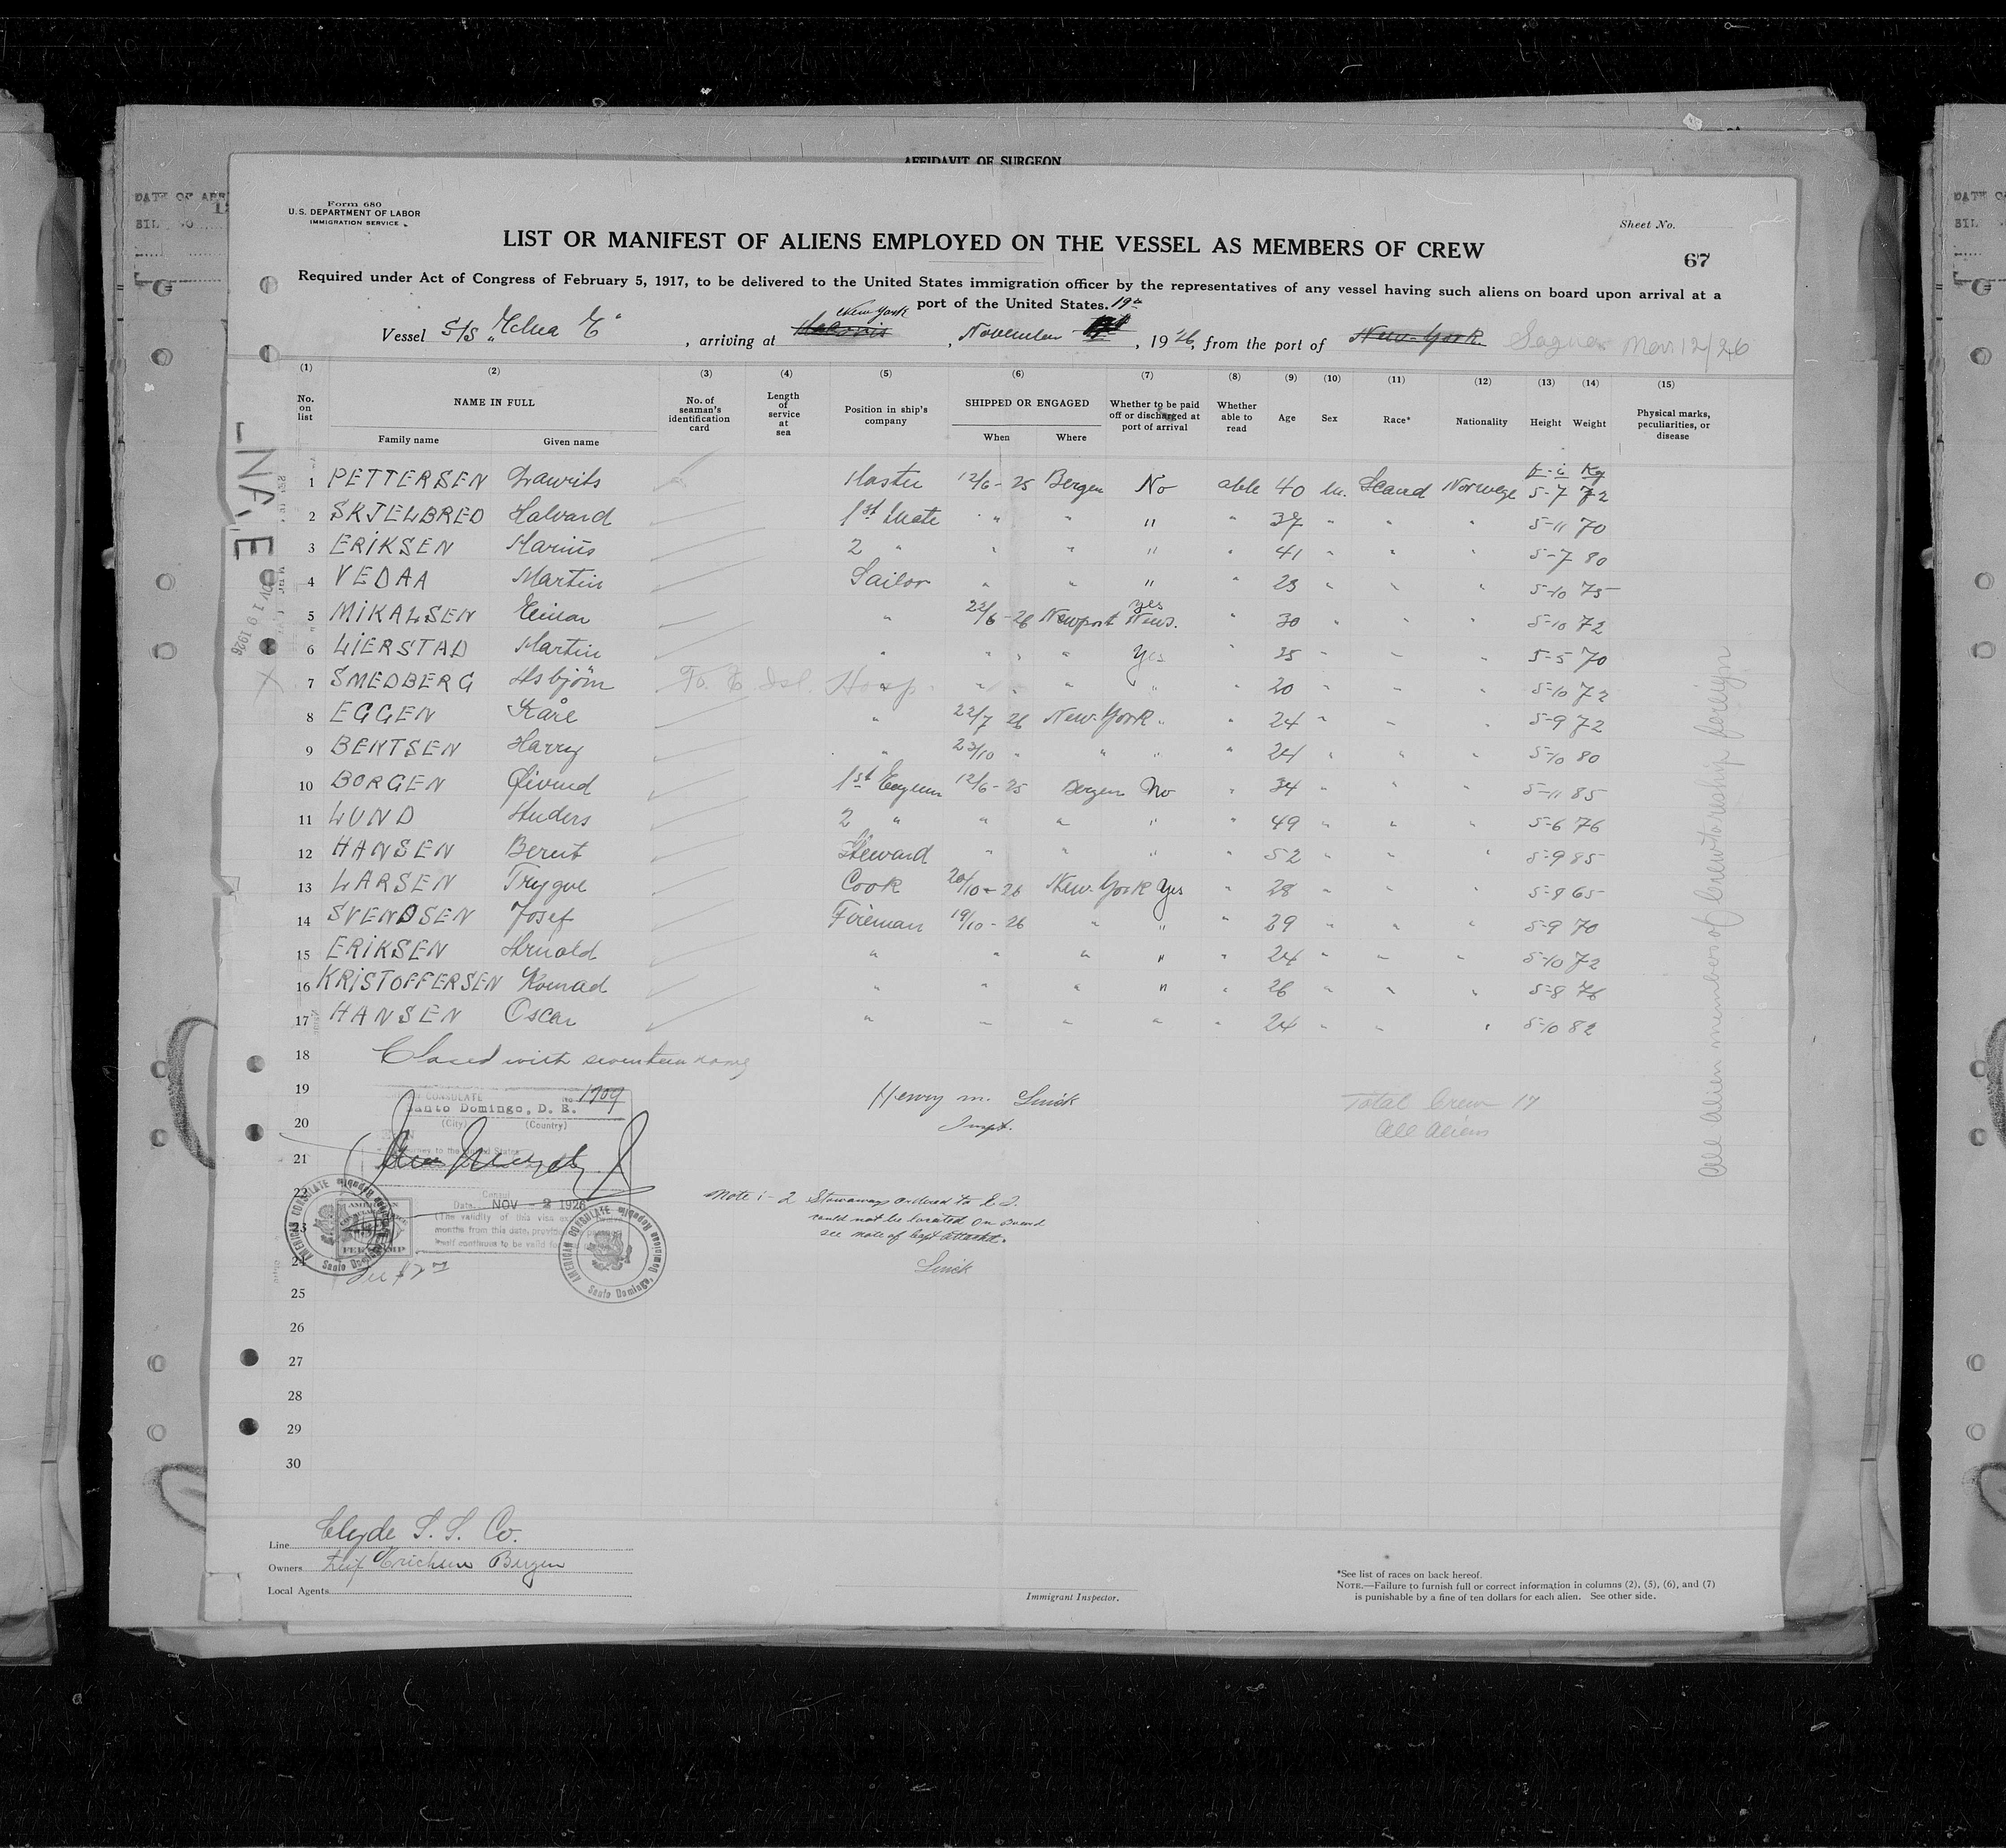 AFFIDAVIT OF SURGEON
Form 680
U.S. DEPARTMENT OF LABOR
IMMIGRATION SERVICE
Sheet No.
LIST OR MANIFEST OF ALIENS EMPLOYED ON THE VESSEL AS MEMBERS OF CREW
67
Required under Act of Congress of February 5, 1917, to be delivered to the United States immigration officer by the representatives of any vessel having such aliens on board upon arrival at a
port of the United States.
Vessel S/S , arriving at New York , November 19th , 1926, from the port of New-York. Nov 12/26
(1) (2) (3) (4) (5) (6) (7) (8) (9) (10) (11) (12) (13) (14) (15)
No. on list NAME IN FULL No. of seaman's identification card Length of service at sea Position in ship's company SHIPPED OR ENGAGED Whether to be paid off or discharged at port of arrival Whether able to read Age Sex Race* Nationality Height Weight Physical marks, peculiarities, or disease
Family name Given name When Where
f - i Kg
1 PETTERSEN Lawrits Master 12/6 - 25 Bergen No able 40 m. Scand Norwege 5-7 72
2 SKJELBRED Halvard 1st Mate " " " " 37 " " " 5-11 70
3 ERIKSEN Marius 2 " " " " " 41 " " " 5-7 80
4 VEDAA Martin Sailor " " " " 23 " " " 5-10 75
5 MIKALSEN Einar " 22/6 - 26 Newport News. yes " 30 " " " 5-10 72
6 LIERSTAD Martin " " " Yes " 25 " " " 5-5 70
7 SMEDBERG Asbjörn To E Isl. Hosp. " " " " " 20 " " " 5-10 72
8 EGGEN Kåre " 22/7 26 New-York " " 24 " " " 5-9 72
9 BENTSEN Harry " 23/10 " " " " 24 " " " 5-10 80
10 BORGEN Øivind 1st Engineer 12/6 - 25 Bergen No " 34 " " " 5-11 85
11 LUND Anders 2 " " " " " 49 " " " 5-6 76
12 HANSEN Bernt Steward " " " " 52 " " " 5-9 85
13 LARSEN Trygve Cook 20/10 - 26 New-York Yes " 28 " " " 5-8 65
14 SVENDSEN Josef Fireman 19/10 - 26 " " " 29 " " " 5-9 70
15 ERIKSEN Arnold " " " " " 24 " " " 5-10 72
16 KRISTOFFERSEN Konrad " " " " " 26 " " " 5-8 76
17 HANSEN Oscar " " " " " 24 " " " 5-10 82
18 Closed with seventeen names
19 CONSULATE No. 1909
Santo Domingo, D. R.
(City) (Country)
Henry M. Smick
Inspt.
Total Crew 17
All Aliens
20
21
22
Consul
Date NOV - 2 1926
(The validity of this visa
months from this date, provided
itself continues to be valid for
AMERICAN CONSULATE
Santo Domingo, Dominican Republic
AMERICAN
FEE STAMP
AMERICAN CONSULATE
Santo Domingo, Dominican Republic
Note :- 2 Stowaways ordered to E. I.
could not be located on board
see note of Capt attached.
Smick
23
24
25
26
27
28
29
30
NOV 19 1926
All Alien members of Crew to reship foreign
Line Clyde S. S. Co.
Owners Leif Erichsen Bergen
Local Agents
Immigrant Inspector.
*See list of races on back hereof.
NOTE.—Failure to furnish full or correct information in columns (2), (5), (6), and (7)
is punishable by a fine of ten dollars for each alien. See other side.